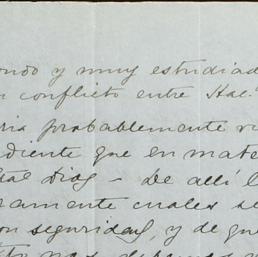 ondo y muy estudiad
n conflicto entre Hac.
ria probablemente
diente que en mate
Diaz - De allí
ramente cuales se
on seguridad, y de